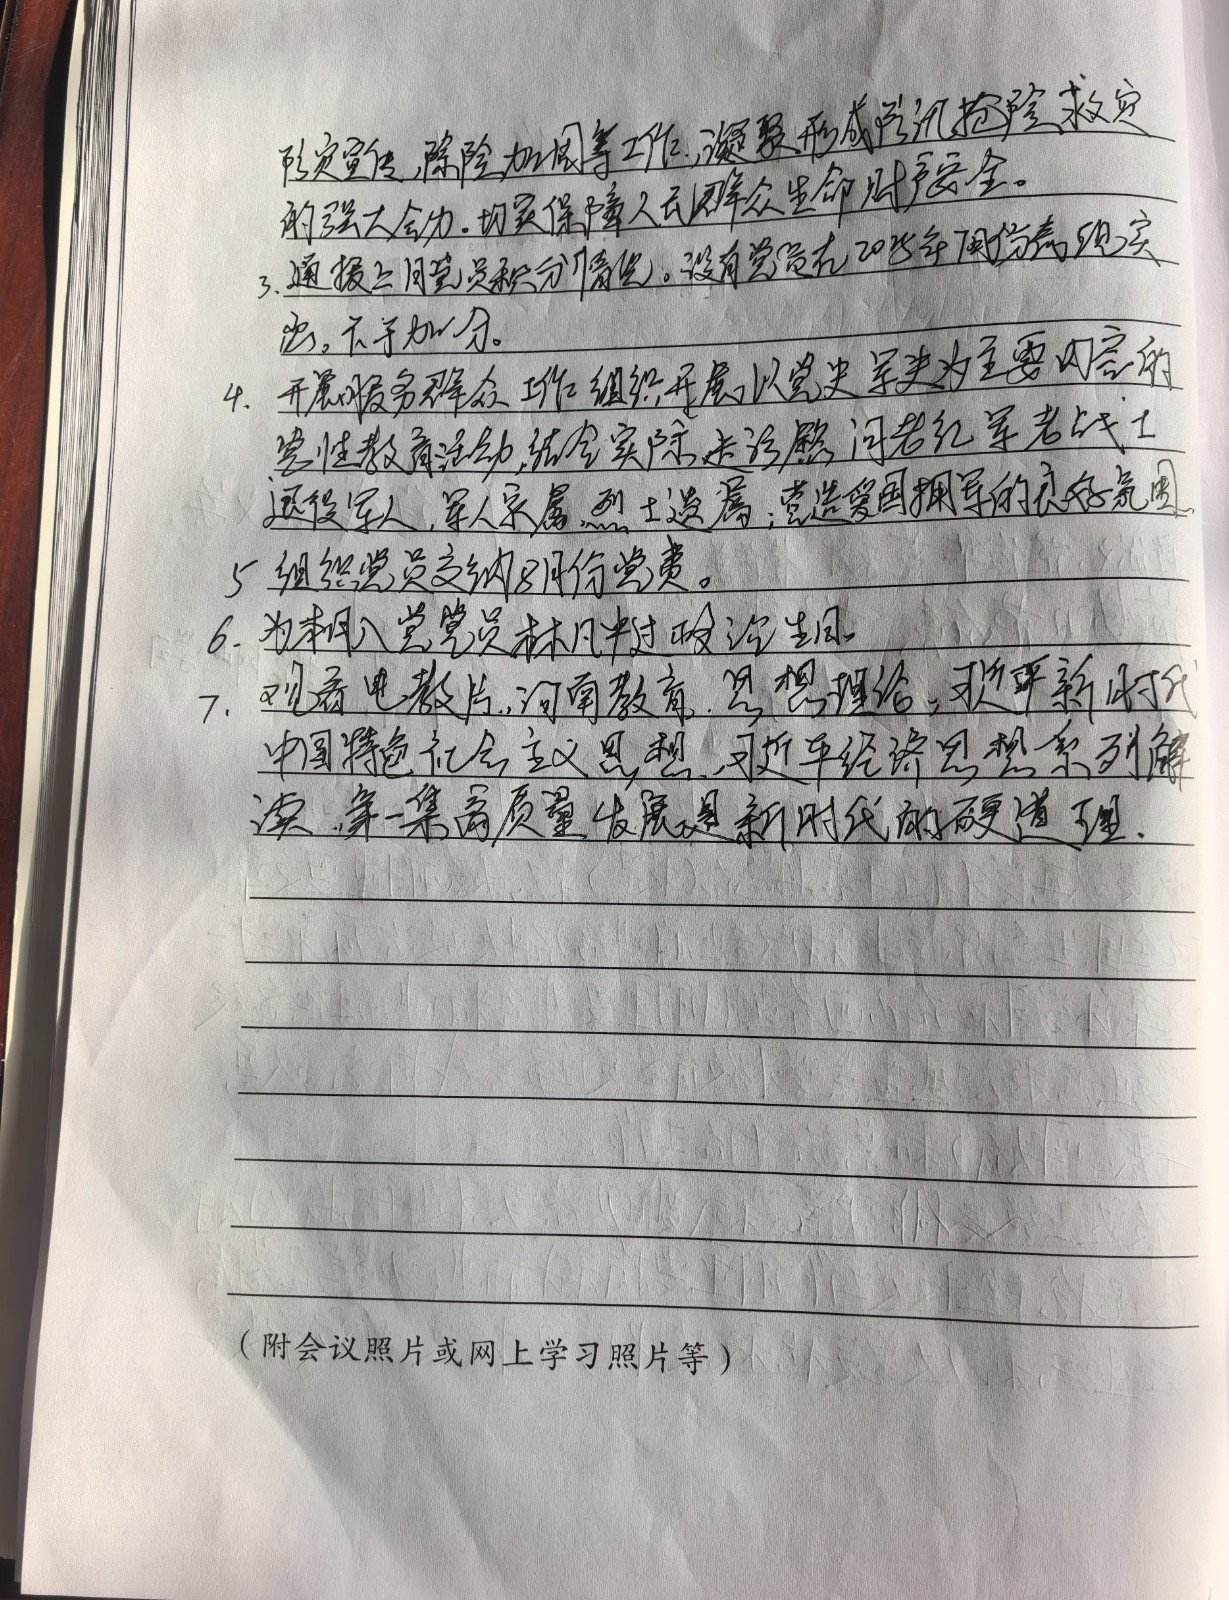 防灾宣传、除险加固等工作,凝聚形成防汛抢险救灾
的强大合力。切实保障人民群众生命财产安全。
3. 通报上月党员积分情况。没有党员在2025年7月份表现突
出。不予加分。
4. 开展服务群众工作 组织开展以党史军史为主要内容的
党性教育活动,结合实际走访慰问老红军老战士
退役军人、军人家属、烈士遗属,营造爱国拥军的良好氛围
5 组织党员交纳8月份党费。
6. 为本月入党党员林凡中过政治生日。
7. 观看电教片,河南教育、思想理论,习近平新时代
中国特色社会主义思想、习近平经济思想系列解
读、第一集高质量发展是新时代的硬道理.
(附会议照片或网上学习照片等)